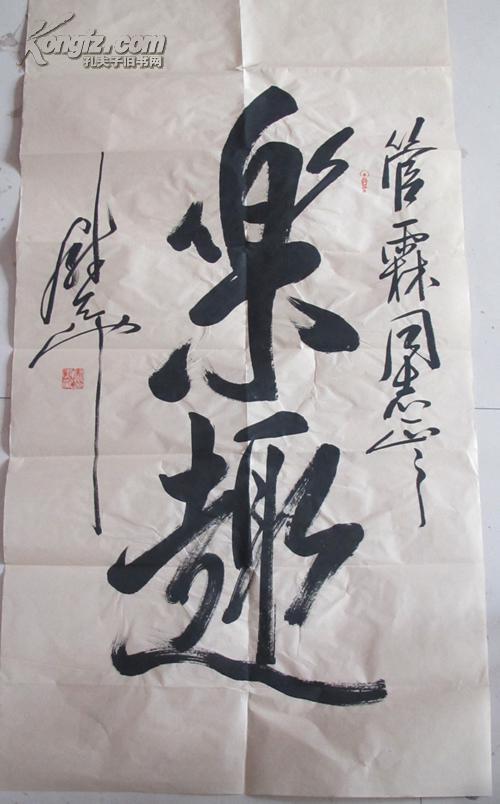 Kongfz.com
孔夫子旧书网
管霖同志正之
乐趣